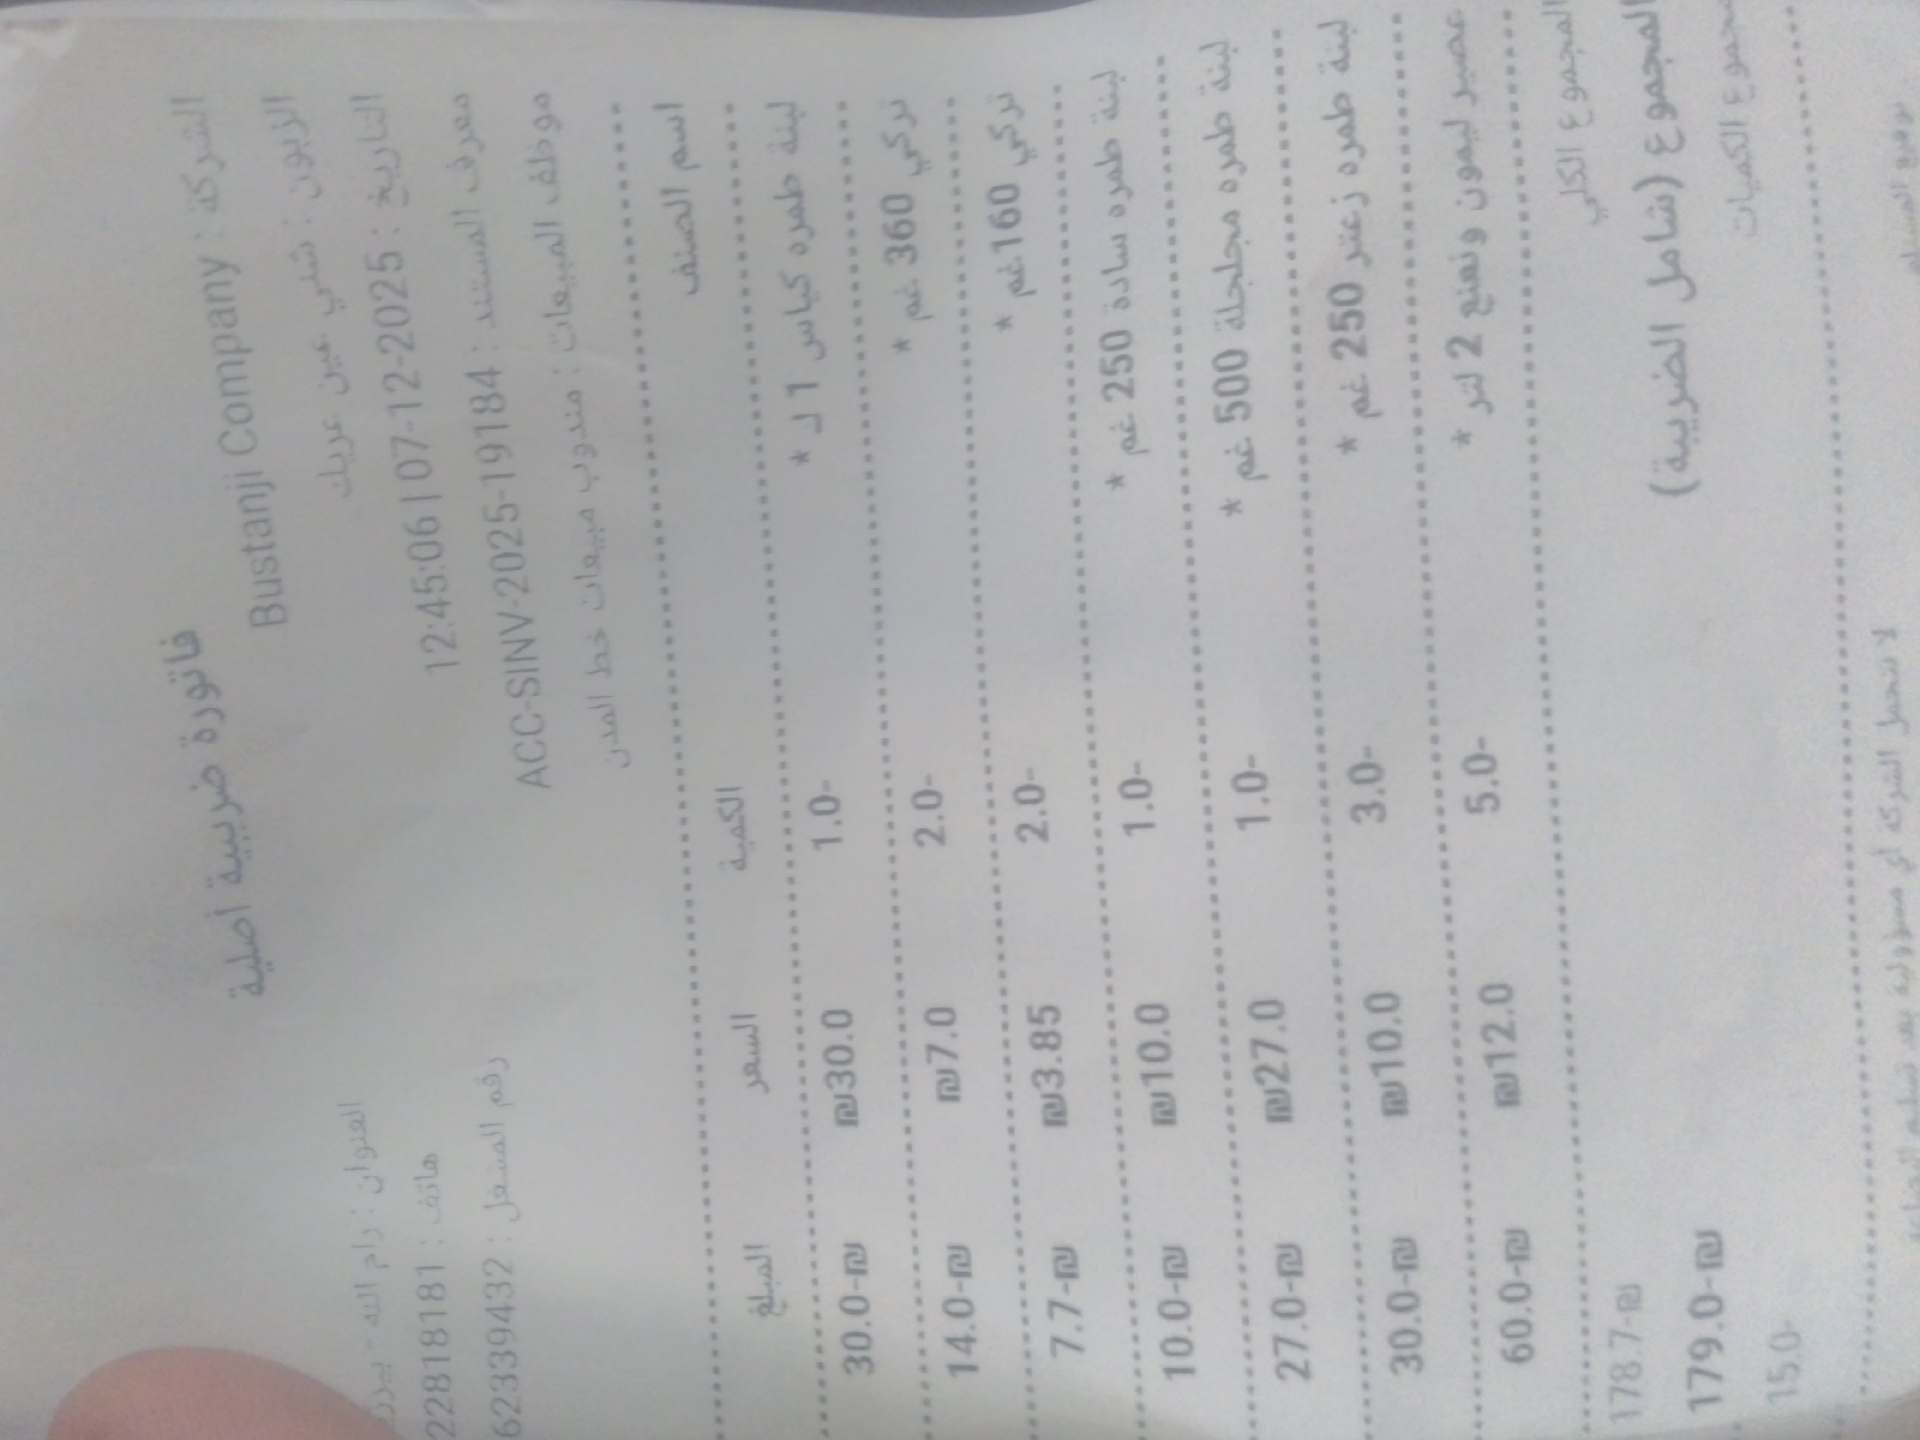 فاتورة ضريبية أصلية
الشركة : Bustanji Company
الزبون : شلي عين عريك
التاريخ : 2025-12-07 | 12:45:06
معرف المستند : ACC-SINV-2025-19184
موظف المبيعات : مندوب مبيعات خط المدن
العنوان : رام الله -
هاتف : 22818181
رقم المشغل : 623339432
اسم الصنف الكمية السعر المبلغ
لبنة طمره كياس 1 ك * 1.0- ₪30.0 30.0-₪
تركي 360 غم * 2.0- ₪7.0 14.0-₪
تركي 160غم * 2.0- ₪3.85 7.7-₪
لبنة طمره سادة 250 غم * 1.0- ₪10.0 10.0-₪
لبنة طمره مجلجلة 500 غم * 1.0- ₪27.0 27.0-₪
لبنة طمره زعتر 250 غم * 3.0- ₪10.0 30.0-₪
عصير ليمون ونعنع 2 لتر * 5.0- ₪12.0 60.0-₪
المجموع الكلي 178.7-₪
المجموع (شامل الضريبة) 179.0-₪
مجموع الكميات 15.0-
لا تتحمل الشركة اي مسؤولية بعد تسليم البضاعة
توقيع المستلم